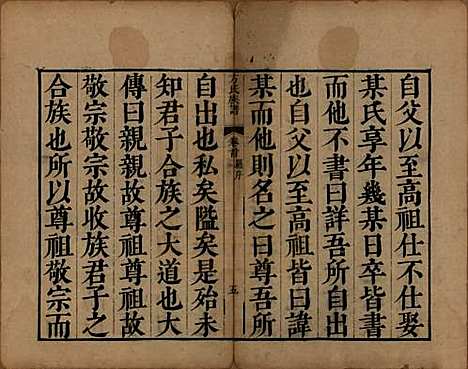 自父以至高祖仕不仕娶
某氏享年幾某日卒皆書
而他不書曰詳吾所自出
也自父以至高祖皆曰諱
某而他則名之曰尊吾所
方氏族譜 卷首 序 五
自出也私矣隘矣是殆未
知君子合族之大道也大
傳曰親親故尊祖尊祖故
敬宗敬宗故收族君子之
合族也所以尊祖敬宗而